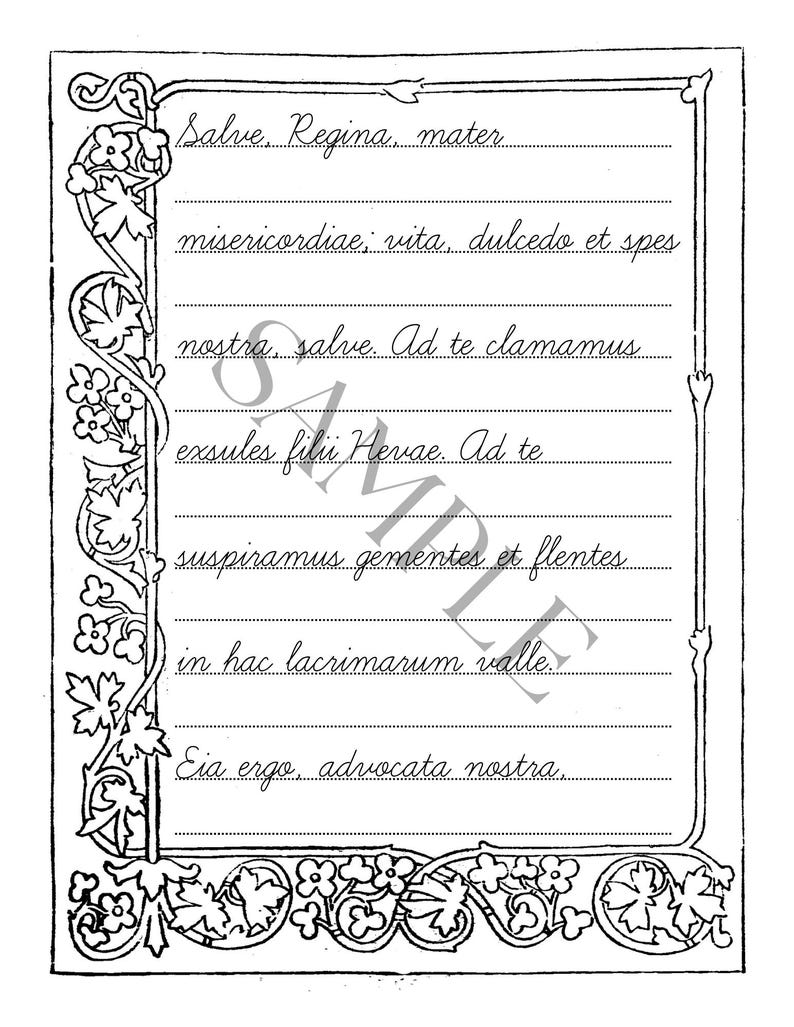 Salve, Regina, mater
misericordiae; vita, dulcedo et spes
nostra, salve. Ad te clamamus
exsules filii Hevae. Ad te
suspiramus gementes et flentes
in hac lacrimarum valle.
Eia ergo, advocata nostra,
SAMPLE